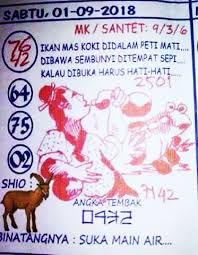 SABTU, 01-09-2018
MK / SANTET: 9/3/6
76
42
IKAN MAS KOKI DIDALAM PETI MATI....
DIBAWA SEMBUNYI DITEMPAT SEPI....
KALAU DIBUKA HARUS HATI-HATI.....
2501
64
75
02
SHIO :
4142
ANGKA TEMBAK
0432
BINATANGNYA : SUKA MAIN AIR....